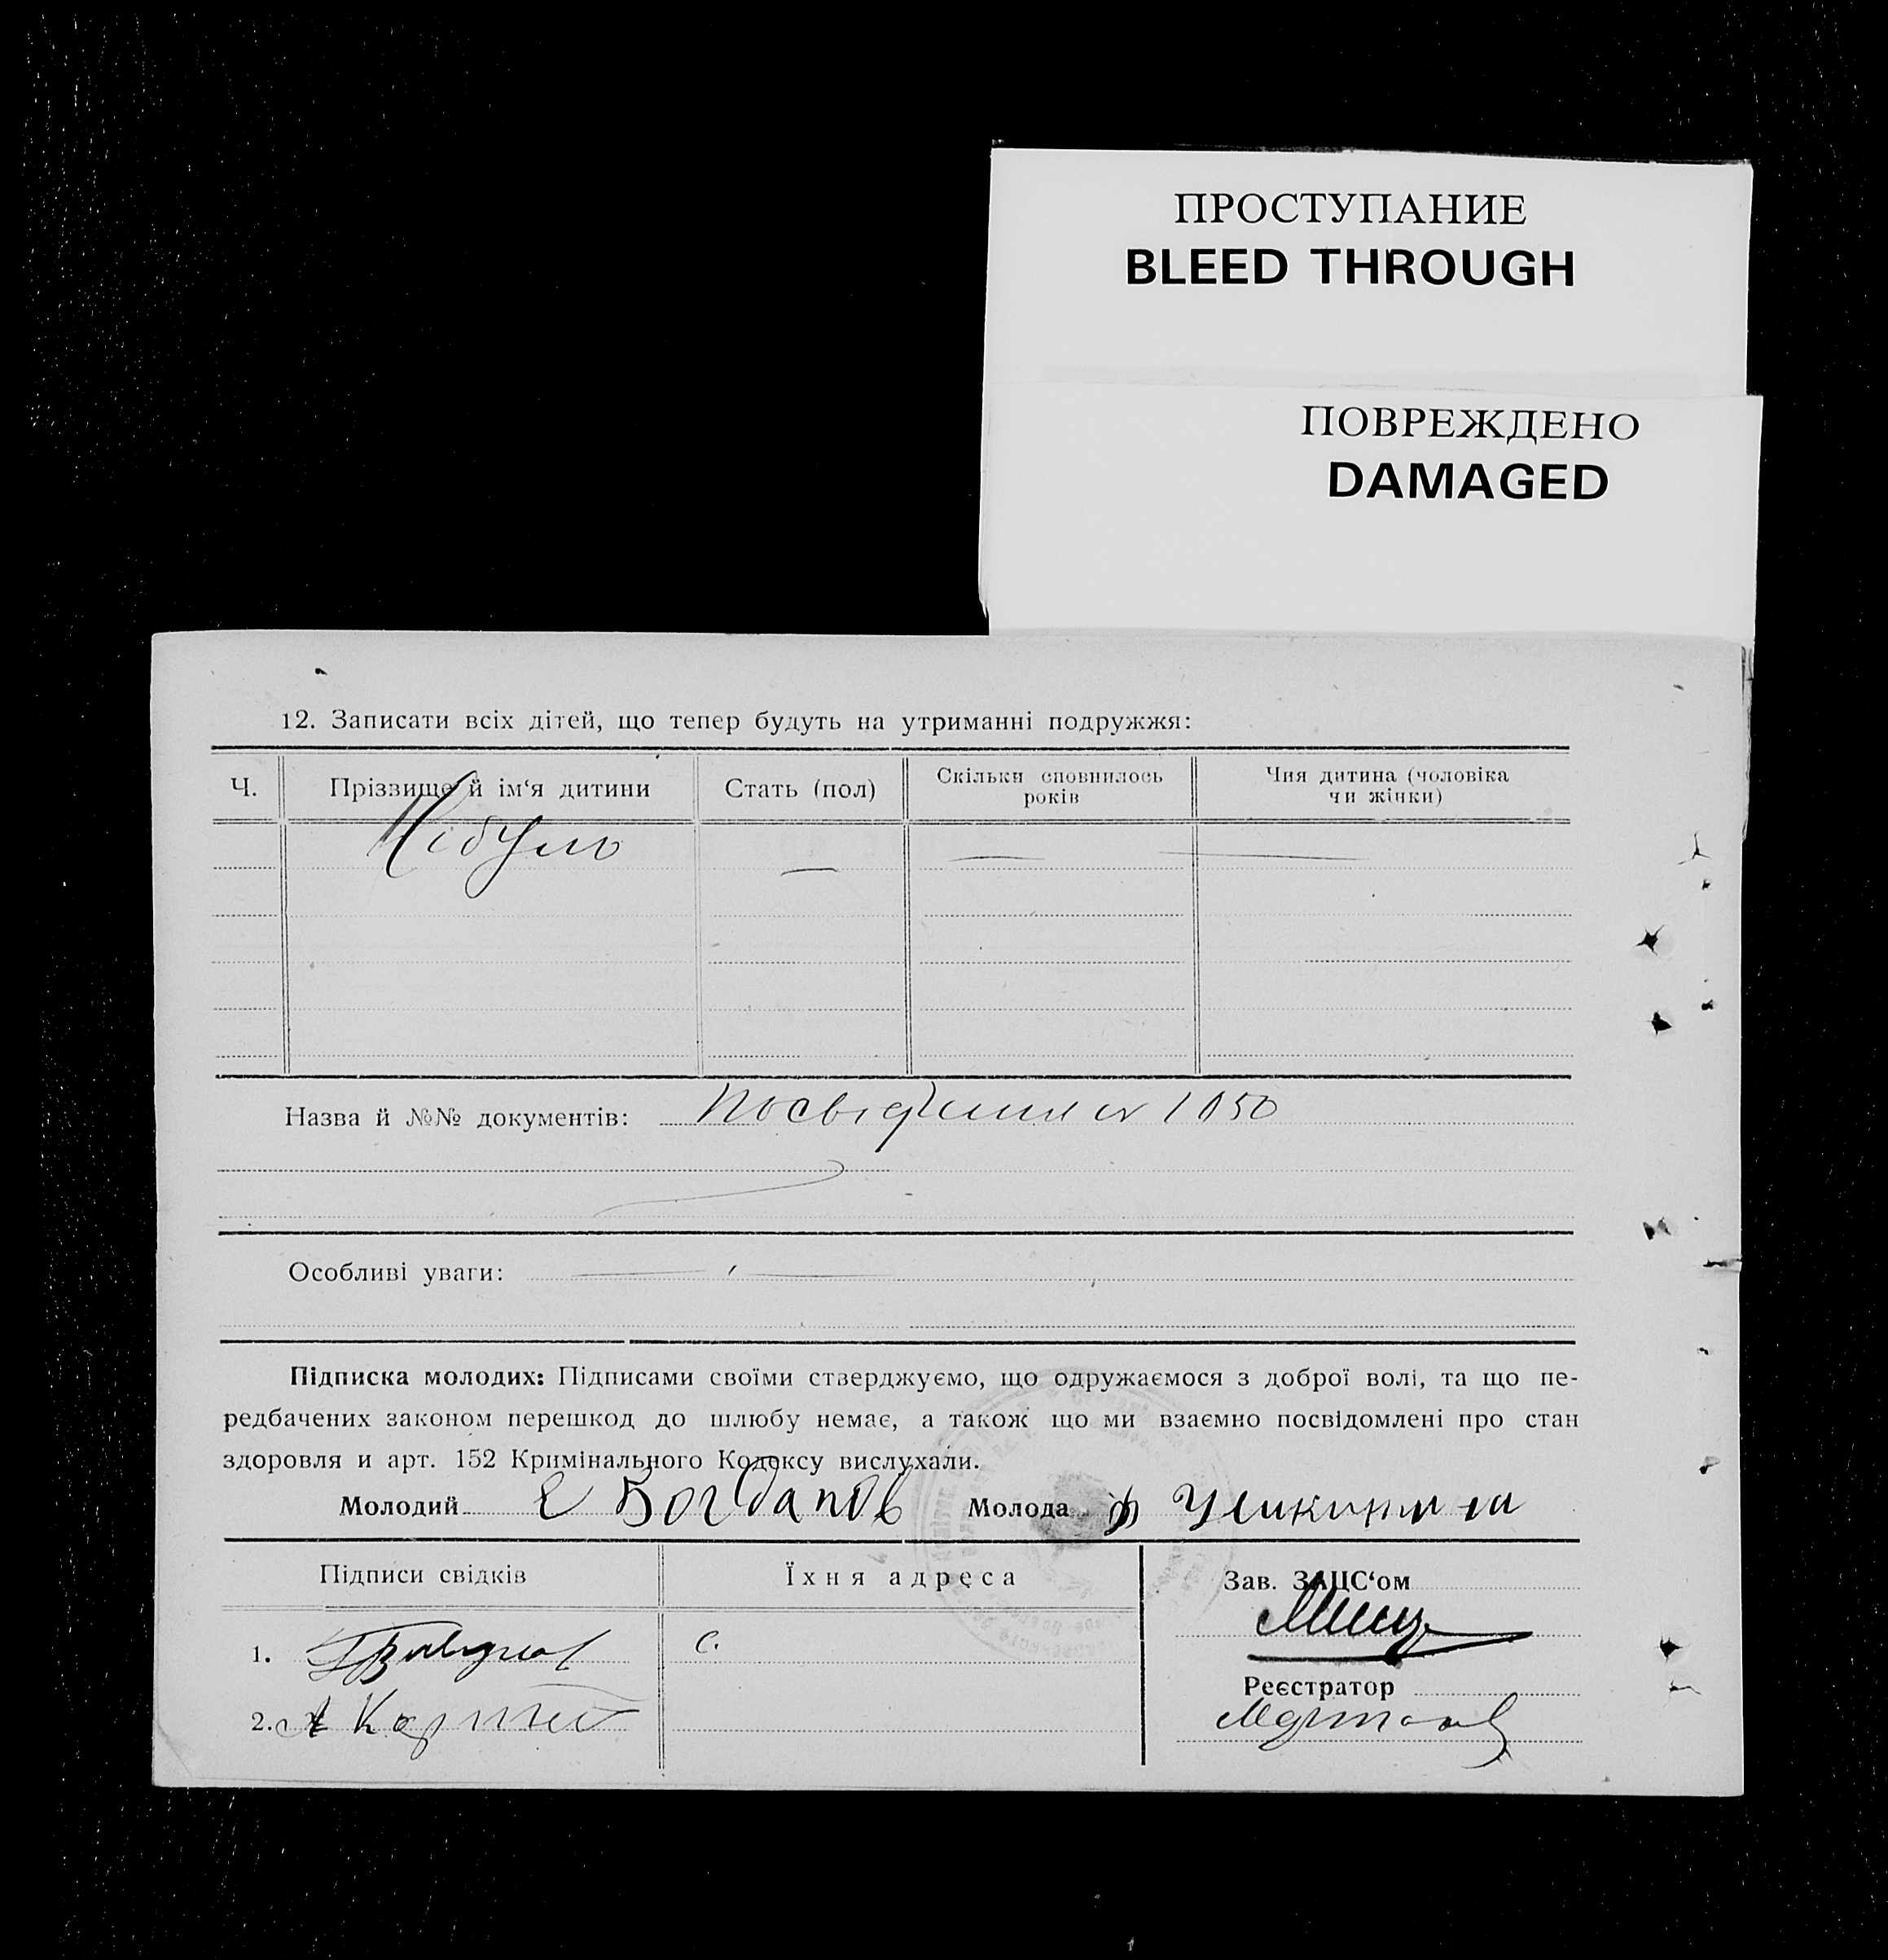 ПРОСТУПАНИЕ
BLEED THROUGH
ПОВРЕЖДЕНО
DAMAGED
12. Записати всіх дітей, що тепер будуть на утриманні подружжя:
Ч.
Прізвище й ім‘я дитини
Стать (пол)
Скільки сповнилось
років
Чия дитина (чоловіка
чи жінки)
Назва й №№ документів: 1050
Особливі уваги:
Підписка молодих: Підписами своїми стверджуємо, що одружаємося з доброї волі, та що пе-
редбачених законом перешкод до шлюбу немає, а також що ми взаємно посвідомлені про стан
здоровля и арт. 152 Кримінального Кодексу вислухали.
Молодий Богданов Молода
Підписи свідків
Їхня адреса
Зав. ЗАЦС‘ом
1.
с.
Реєстратор
2.